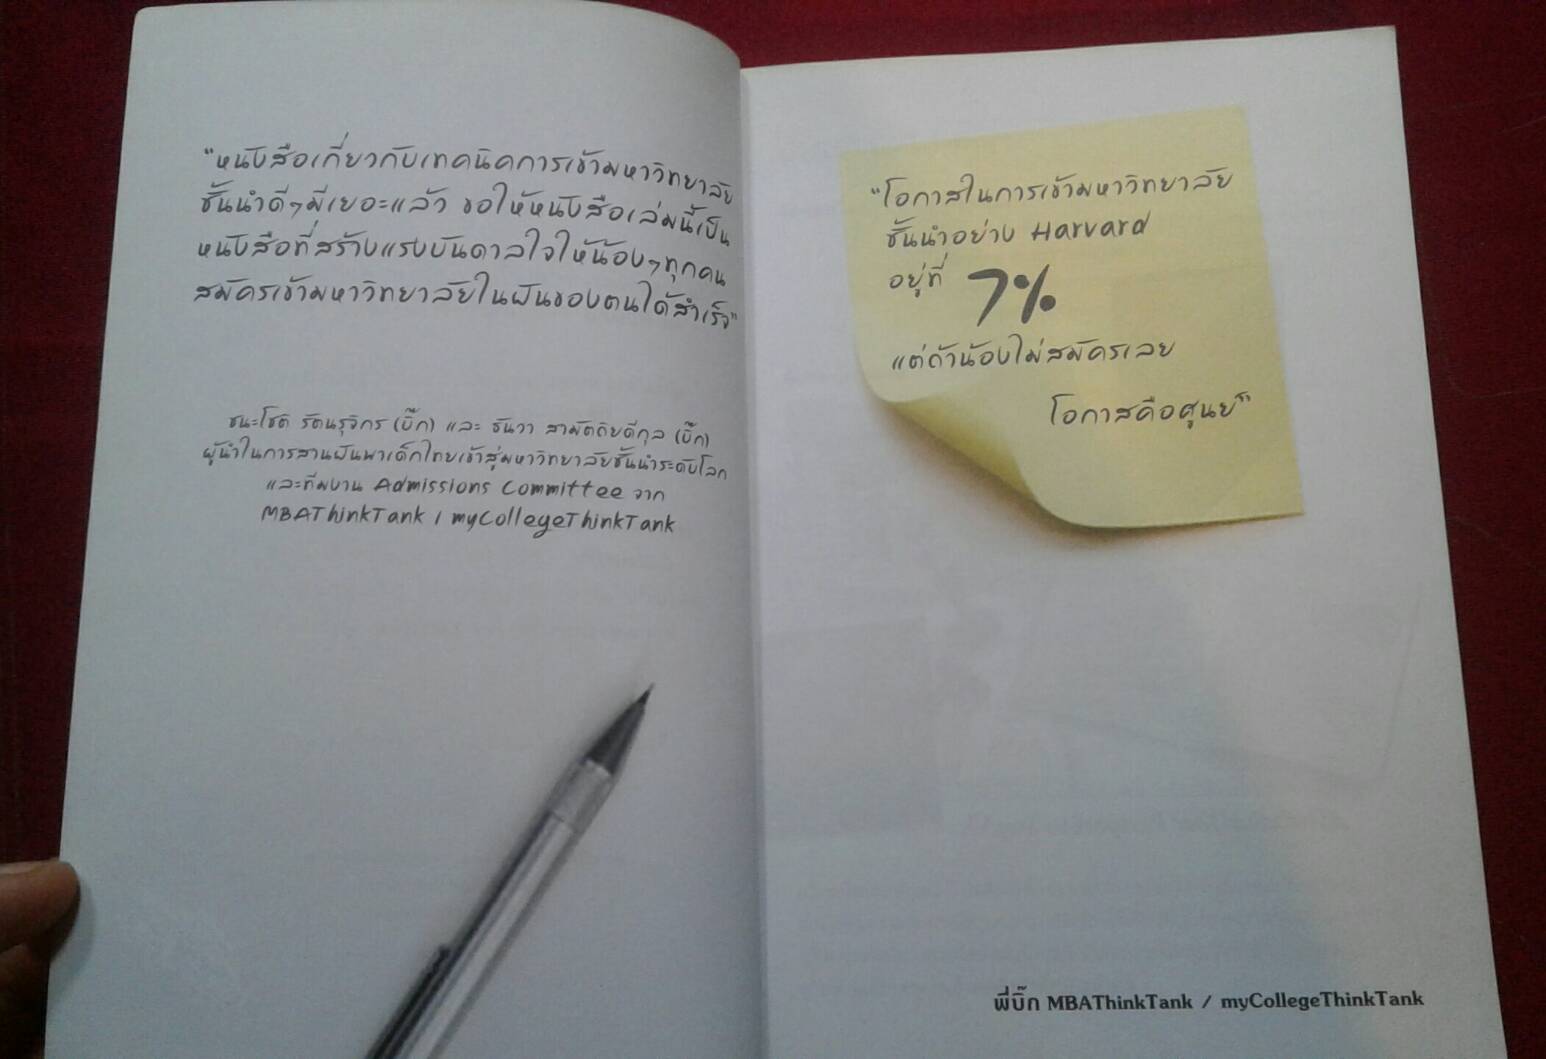 "หนังสือเกี่ยวกับเทคนิคการเข้ามหาวิทยาลัย
ชั้นนำดีๆมีเยอะแล้ว ขอให้หนังสือเล่มนี้เป็น
หนังสือที่สร้างแรงบันดาลใจให้น้องๆทุกคน
สมัครเข้ามหาวิทยาลัยในฝันของตนได้สำเร็จ"
ชนะโชติ รัตนรุจิกร (บิ๊ก) และ ธันวา สามัตถิยดีกุล (บิ๊ก)
ผู้นำในการสานฝันพาเด็กไทยเข้าสู่มหาวิทยาลัยชั้นนำระดับโลก
และทีมงาน Admissions Committee จาก
MBAThinkTank / myCollegeThinkTank
"โอกาสในการเข้ามหาวิทยาลัย
ชั้นนำอย่าง Harvard
อยู่ที่ 7%
แต่ถ้าน้องไม่สมัครเลย
โอกาสคือศูนย์"
พี่บิ๊ก MBAThinkTank / myCollegeThinkTank